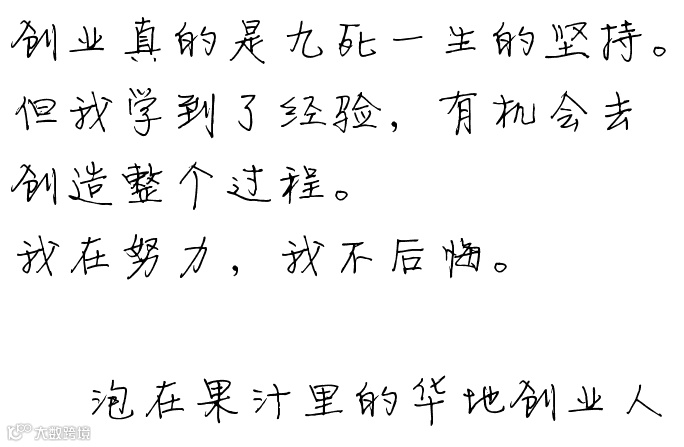 创业真的是九死一生的坚持。
但我学到了经验，有机会去
创造整个过程。
我在努力，我不后悔。
泡在果汁里的华地创业人
大数跨境